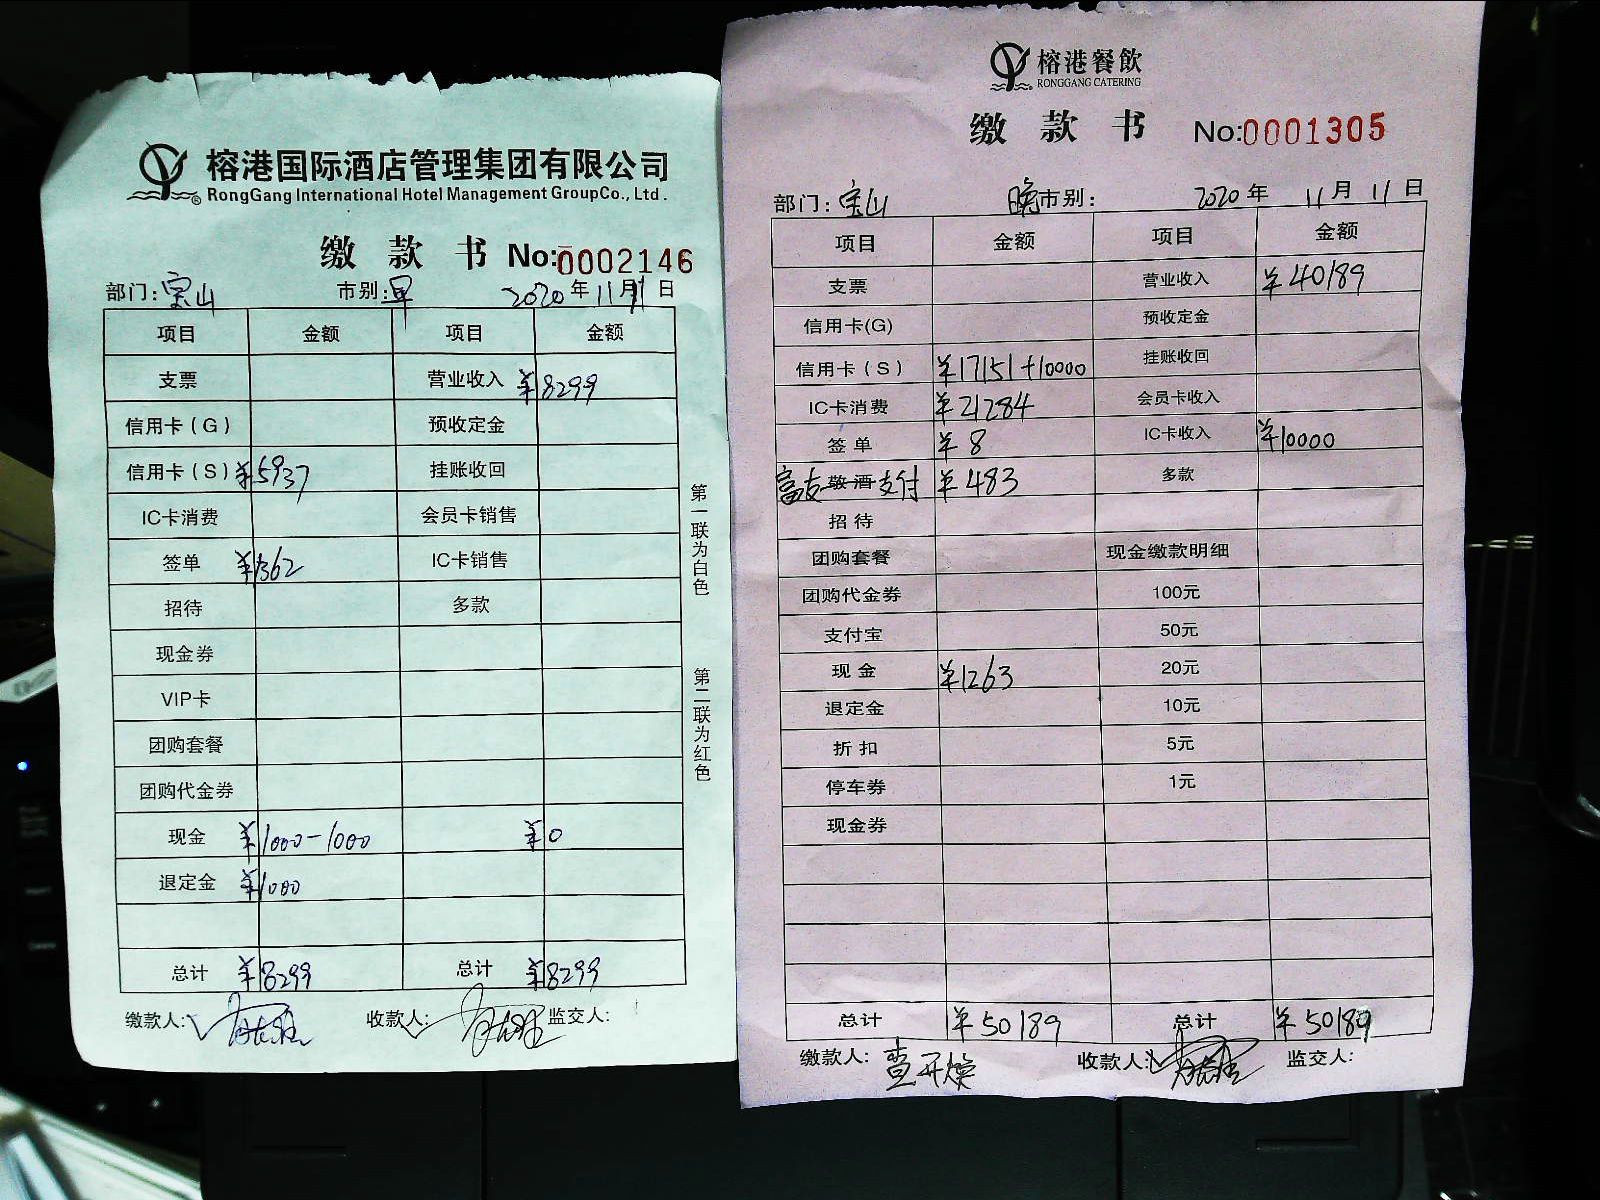 榕港国际酒店管理集团有限公司
RongGang International Hotel Management GroupCo., Ltd.
缴款书 No:0002146
部门:宝山 市别:早 2020年11月11日
项目 金额 项目 金额
支票 营业收入 ¥8299
信用卡(G) 预收定金
信用卡(S) ¥5937 挂账收回
IC卡消费 会员卡销售
签单 ¥1362 IC卡销售
招待 多款
现金券
VIP卡
团购套餐
团购代金券
现金 ¥1000-1000 ¥0
退定金 ¥1000
总计 ¥8299 总计 ¥8299
缴款人: 收款人: 监交人:
第一联为白色 第二联为红色
榕港餐飲
RONGGANG CATERING
缴款书 No:0001305
部门:宝山 晚市别: 2020年11月11日
项目 金额 项目 金额
支票 营业收入 ¥40189
信用卡(G) 预收定金
信用卡(S) ¥17151+10000 挂账收回
IC卡消费 ¥21284 会员卡收入
签单 ¥8 IC卡收入 ¥10000
富友敬酒支付 ¥483 多款
招待
团购套餐 现金缴款明细
团购代金券 100元
支付宝 50元
现金 ¥1263 20元
退定金 10元
折扣 5元
停车券 1元
现金券
总计 ¥50189 总计 ¥50189
缴款人:查开焕 收款人: 监交人: